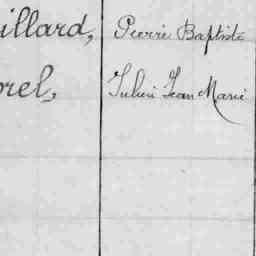 illard, Pierre Baptiste
orel, Julien Jean Marie